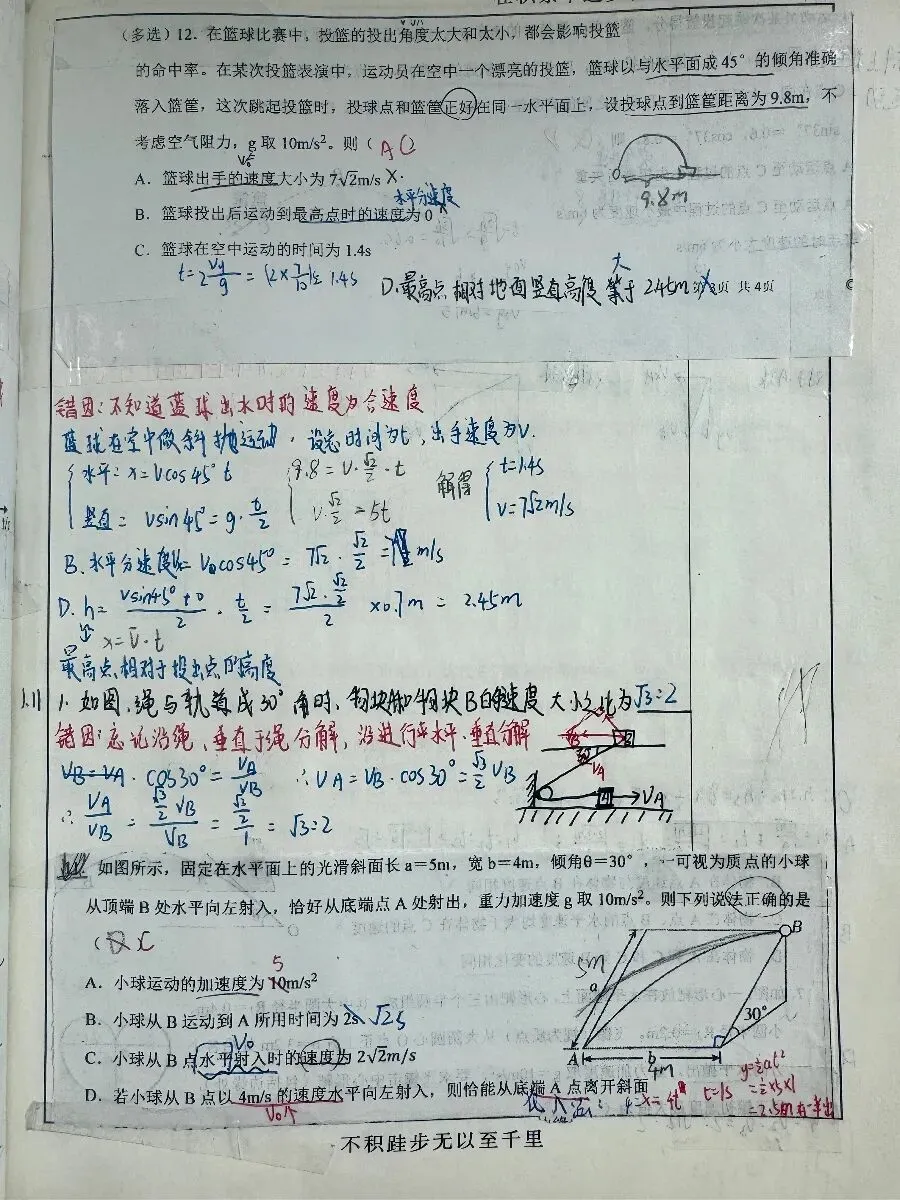 (多选) 12. 在篮球比赛中，投篮的投出角度太大和太小，都会影响投篮
的命中率。在某次投篮表演中，运动员在空中一个漂亮的投篮，篮球以与水平面成 45° 的倾角准确
落入篮筐，这次跳起投篮时，投球点和篮筐正好在同一水平面上，设投球点到篮筐距离为 9.8m，不
考虑空气阻力，g 取 10m/s²。则（ AC
V₀
A．篮球出手的速度大小为 7√2m/s ×
9.8m
水平分速度
B．篮球投出后运动到最高点时的速度为 0
C．篮球在空中运动的时间为 1.4s
t=2 Vy/g = (2×7/10)s 1.4s
大
D.最高点相对地面竖直高度等于 2.45m × 页 共 4页
错因：不知道篮球出水时的速度为合速度
篮球在空中做斜抛运动，设总时间为t，出手速度为v.
水平：x=vcos45°t 9.8=v·√2/2·t 解得 t=1.4s
竖直= vsin45°=g·t/2 v·√2/2=5t v=7√2m/s
B.水平分速度 = V₀cos45° = 7√2·√2/2 = m/s
D. h= (vsin45°+0)/2 · t/2 = (7√2·√2/2)/2 ×0.7m = 2.45m
x=v̄·t
最高点相对于投出点的高度
1.11 1. 如图，绳与轨道成30°角时，物块A和物块B的速度大小之比为√3:2
错因：忘记沿绳，垂直于绳分解，沿进行水平，垂直分解
VB=VA· cos30°=VA/VB ∴VA=VB·cos30°=√3/2 VB
∴ VA/VB = (√3/2 VB)/VB = (√3/2)/1 = √3:2
B
VA
A
VA
如图所示，固定在水平面上的光滑斜面长 a＝5m，宽 b＝4m，倾角θ＝30°，一可视为质点的小球
从顶端 B 处水平向左射入，恰好从底端点 A 处射出，重力加速度 g 取 10m/s²。则下列说法正确的是
（ C
5
A．小球运动的加速度为 10m/s²
B．小球从 B 运动到 A 所用时间为 2s √2s
V₀
C．小球从 B 点水平射入时的速度为 2√2m/s
D．若小球从 B 点以 4m/s 的速度水平向左射入，则恰能从底端 A 点离开斜面
V₀↑
x=4t t=1s
y=½at²
=½×5×1
=2.5m
B
5m
a
30°
A
b
4m
不积跬步无以至千里